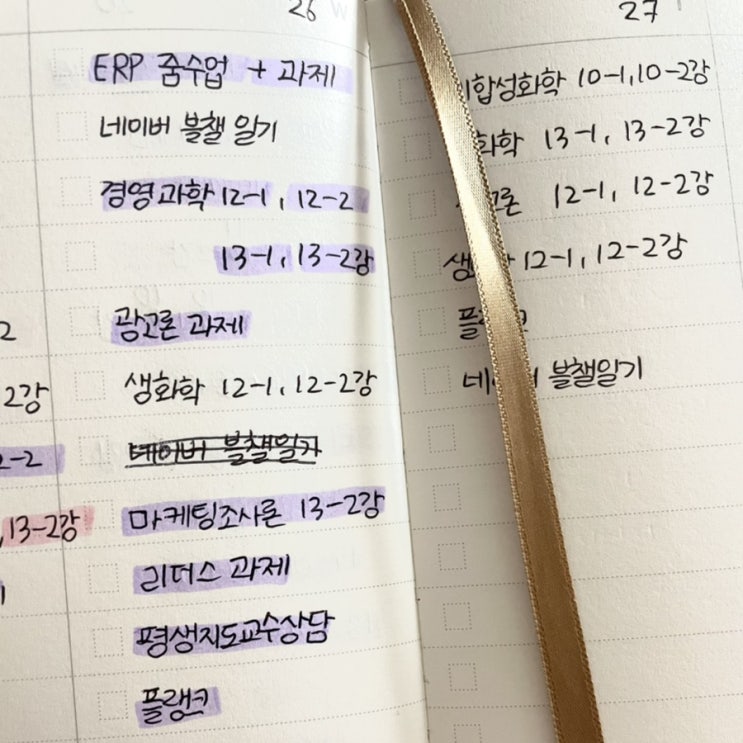 26
ERP 줌수업 + 과제
네이버 블챌 일기
경영과학 12-1, 12-2
13-1, 13-2강
광고론 과제
생화학 12-1, 12-2강
네이버 블챌일기
마케팅조사론 13-2강
리더스 과제
평생지도교수상담
플랭크
2
2강
2-2
13-2강
27
합성화학 10-1, 10-2강
화학 13-1, 13-2강
12-1, 12-2강
12-1, 12-2강
블챌일기